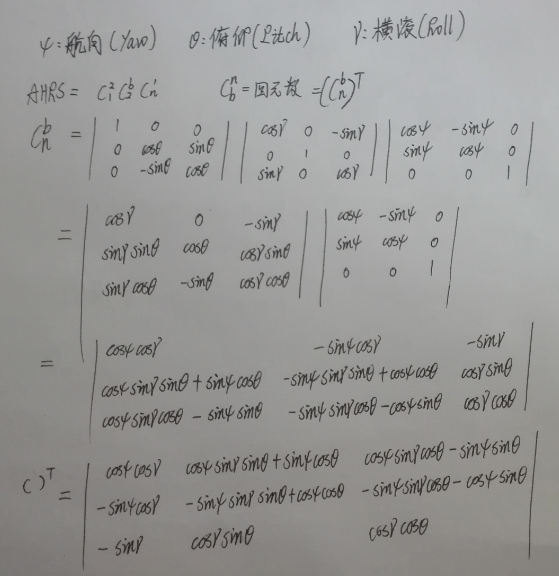 ψ:航向(Yaw) θ:俯仰(Pitch) γ:横滚(Roll)
AHRS = C₁² C₂ᵇ Cₙ¹ C_b^n = 四元数 = (C_n^b)^T
C_n^b = | 1 0 0 | | cosγ 0 -sinγ | | cosψ -sinψ 0 |
| 0 cosθ sinθ | | 0 1 0 | | sinψ cosψ 0 |
| 0 -sinθ cosθ | | sinγ 0 cosγ | | 0 0 1 |
= | cosγ 0 -sinγ | | cosψ -sinψ 0 |
| sinγ sinθ cosθ cosγ sinθ | | sinψ cosψ 0 |
| sinγ cosθ -sinθ cosγ cosθ | | 0 0 1 |
= | cosψ cosγ -sinψ cosγ -sinγ |
| cosψ sinγ sinθ + sinψ cosθ -sinψ sinγ sinθ + cosψ cosθ cosγ sinθ |
| cosψ sinγ cosθ - sinψ sinθ -sinψ sinγ cosθ - cosψ sinθ cosγ cosθ |
( )^T = | cosψ cosγ cosψ sinγ sinθ + sinψ cosθ cosψ sinγ cosθ - sinψ sinθ |
| -sinψ cosγ -sinψ sinγ sinθ + cosψ cosθ -sinψ sinγ cosθ - cosψ sinθ |
| -sinγ cosγ sinθ cosγ cosθ |